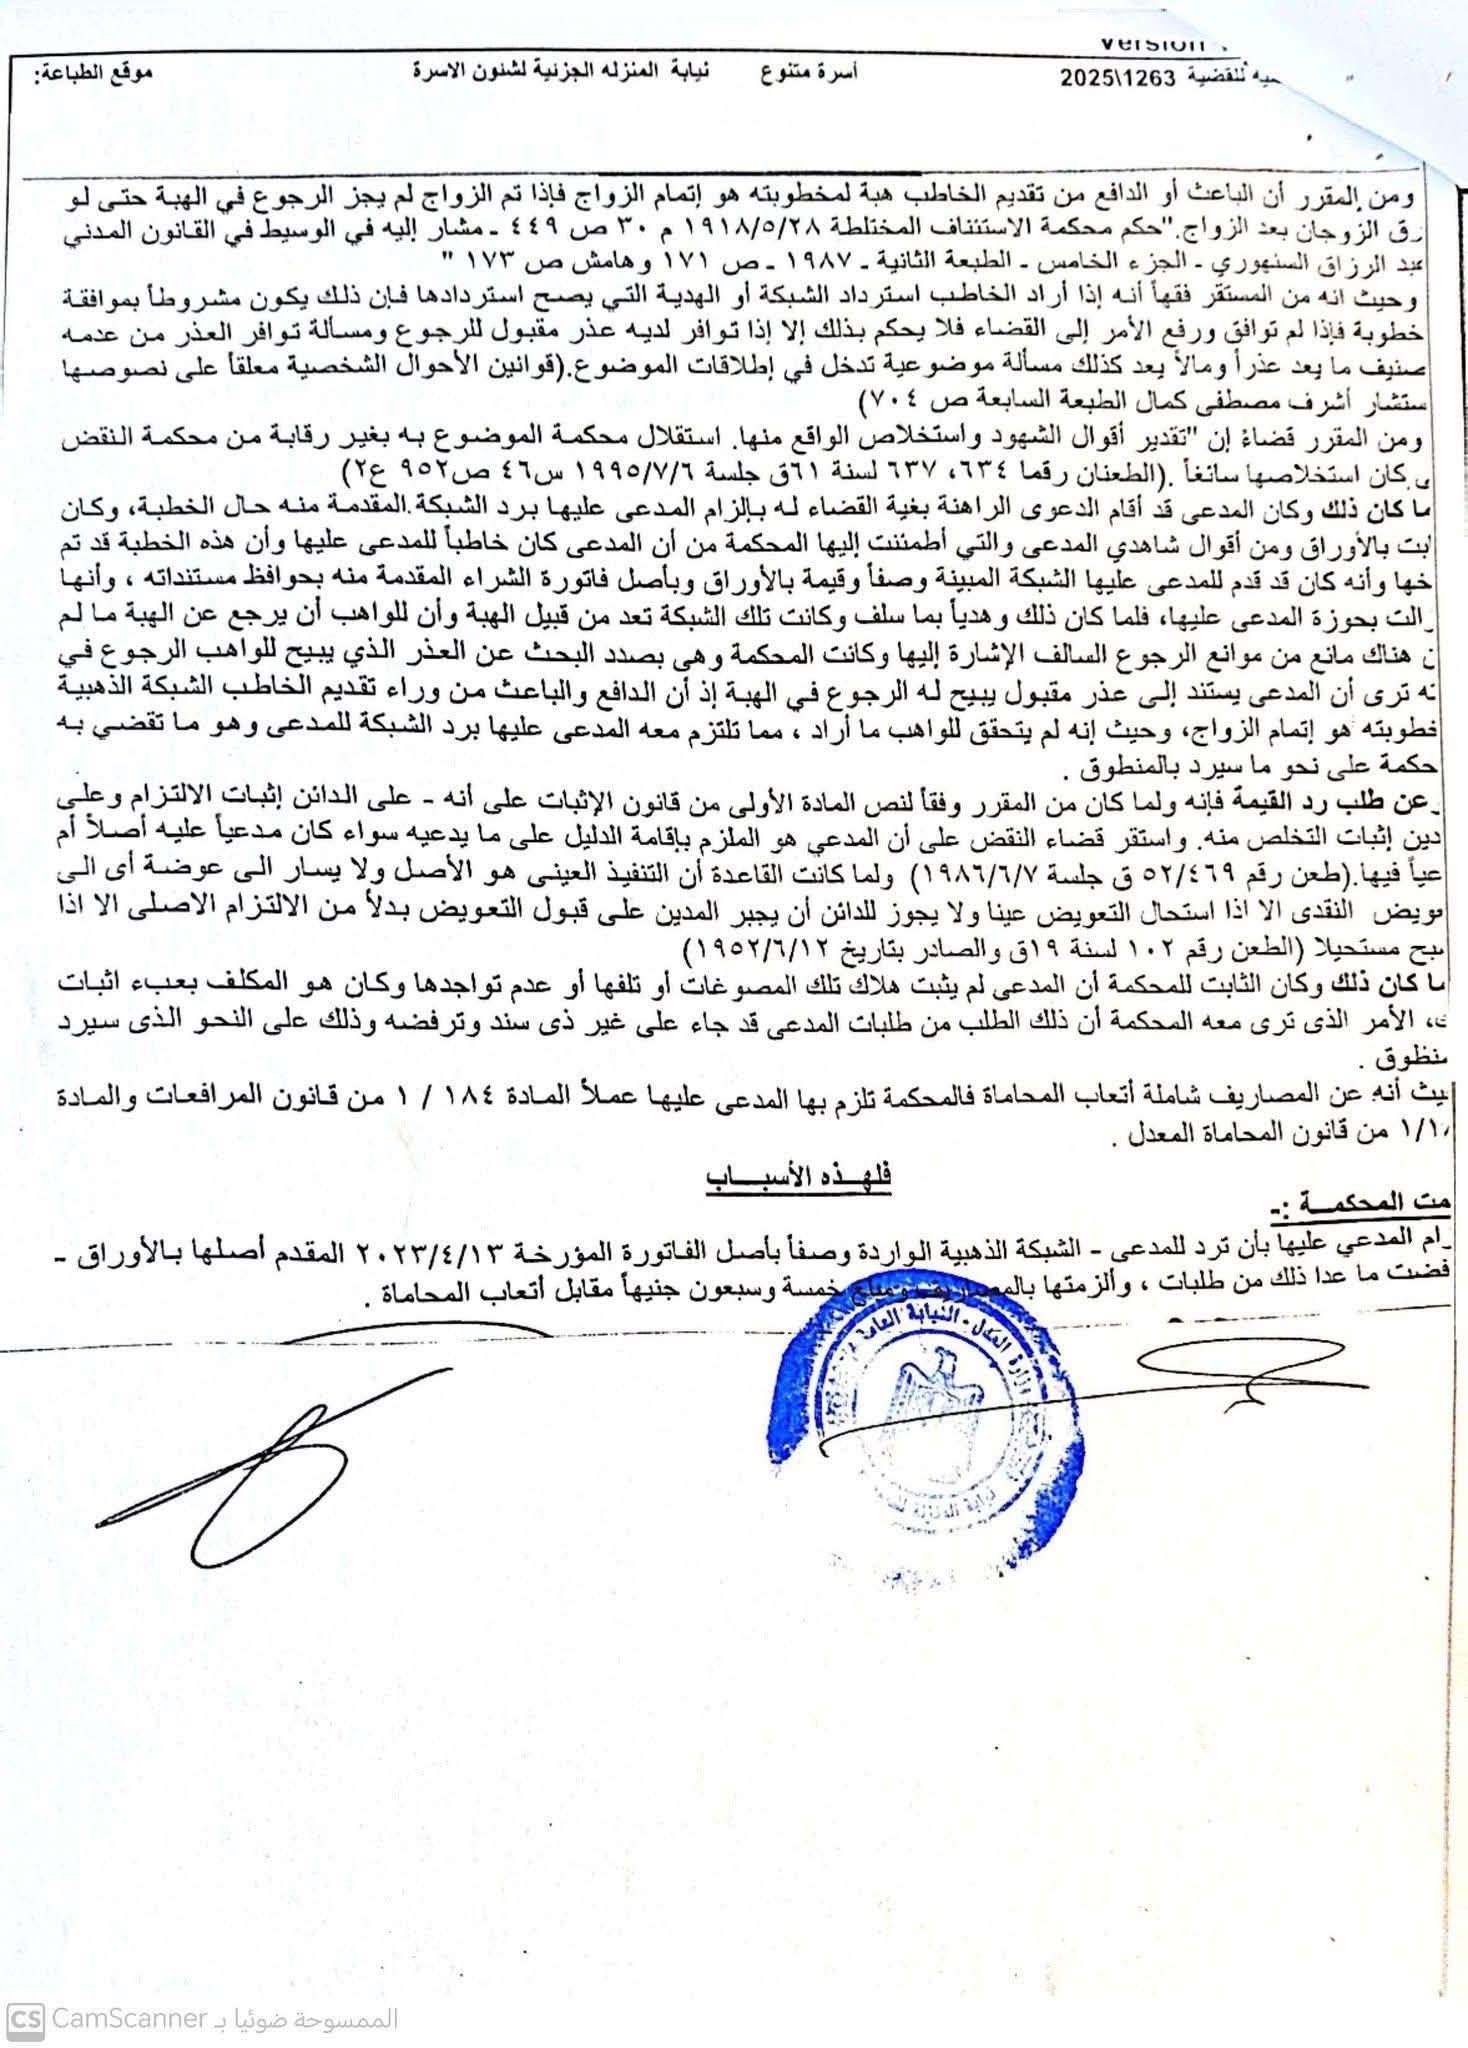 Version
للقضية 1263\2025 أسرة متنوع نيابة المنزله الجزئية لشئون الاسرة موقع الطباعة:
ومن المقرر أن الباعث أو الدافع من تقديم الخاطب هبة لمخطوبته هو إتمام الزواج فإذا تم الزواج لم يجز الرجوع في الهبة حتى لو
رق الزوجان بعد الزواج."حكم محكمة الاستئناف المختلطة ١٩١٨/٥/٢٨ م ٣٠ ص ٤٤٩ ـ مشار إليه في الوسيط في القانون المدني
عبد الرزاق السنهوري ـ الجزء الخامس ـ الطبعة الثانية ـ ١٩٨٧ ـ ص ١٧١ وهامش ص ١٧٣ "
وحيث انه من المستقر فقهاً أنه إذا أراد الخاطب استرداد الشبكة أو الهدية التي يصح استردادها فإن ذلك يكون مشروطاً بموافقة
خطوبة فإذا لم توافق ورفع الأمر إلى القضاء فلا يحكم بذلك إلا إذا توافر لديه عذر مقبول للرجوع ومسألة توافر العذر من عدمه
صنيف ما يعد عذراً ومالا يعد كذلك مسألة موضوعية تدخل في إطلاقات الموضوع.(قوانين الأحوال الشخصية معلقاً على نصوصها
ستشار أشرف مصطفى كمال الطبعة السابعة ص ٧٠٤)
ومن المقرر قضاءً إن "تقدير أقوال الشهود واستخلاص الواقع منها. استقلال محكمة الموضوع به بغير رقابة من محكمة النقض
ى كان استخلاصها سائغاً .(الطعنان رقما ٦٣٤، ٦٣٧ لسنة ٦١ق جلسة ١٩٩٥/٧/٦ س٤٦ ص٩٥٢ ع٢)
ما كان ذلك وكان المدعى قد أقام الدعوى الراهنة بغية القضاء له بإلزام المدعى عليها برد الشبكة المقدمة منه حال الخطبة، وكان
ابت بالأوراق ومن أقوال شاهدي المدعى والتي أطمئنت إليها المحكمة من أن المدعى كان خاطباً للمدعى عليها وأن هذه الخطبة قد تم
خها وأنه كان قد قدم للمدعى عليها الشبكة المبينة وصفاً وقيمة بالأوراق وبأصل فاتورة الشراء المقدمة منه بحوافظ مستنداته ، وأنها
الت بحوزة المدعى عليها، فلما كان ذلك وهدياً بما سلف وكانت تلك الشبكة تعد من قبيل الهبة وأن للواهب أن يرجع عن الهبة ما لم
ن هناك مانع من موانع الرجوع السالف الإشارة إليها وكانت المحكمة وهى بصدد البحث عن العذر الذي يبيح للواهب الرجوع في
ته ترى أن المدعى يستند إلى عذر مقبول يبيح له الرجوع في الهبة إذ أن الدافع والباعث من وراء تقديم الخاطب الشبكة الذهبية
خطوبته هو إتمام الزواج، وحيث إنه لم يتحقق للواهب ما أراد ، مما تلتزم معه المدعى عليها برد الشبكة للمدعى وهو ما تقضي به
حكمة على نحو ما سيرد بالمنطوق .
عن طلب رد القيمة فإنه ولما كان من المقرر وفقاً لنص المادة الأولى من قانون الإثبات على أنه - على الدائن إثبات الالتزام وعلى
دين إثبات التخلص منه. واستقر قضاء النقض على أن المدعي هو الملزم بإقامة الدليل على ما يدعيه سواء كان مدعياً عليه أصلاً أم
عياً فيها.(طعن رقم ٥٢/٤٦٩ ق جلسة ١٩٨٦/٦/٧) ولما كانت القاعدة أن التنفيذ العينى هو الأصل ولا يسار الى عوضة أى الى
عويض النقدى الا اذا استحال التعويض عينا ولا يجوز للدائن أن يجبر المدين على قبول التعويض بدلاً من الالتزام الاصلى الا اذا
سبح مستحيلا (الطعن رقم ١٠٢ لسنة ١٩ق والصادر بتاريخ ١٩٥٢/٦/١٢)
ما كان ذلك وكان الثابت للمحكمة أن المدعى لم يثبت هلاك تلك المصوغات أو تلفها أو عدم تواجدها وكان هو المكلف بعبء اثبات
ك، الأمر الذى ترى معه المحكمة أن ذلك الطلب من طلبات المدعى قد جاء على غير ذى سند وترفضه وذلك على النحو الذى سيرد
منطوق .
يث أنه عن المصاريف شاملة أتعاب المحاماة فالمحكمة تلزم بها المدعى عليها عملاً المادة ١٨٤ / ١ من قانون المرافعات والمادة
١/١٨ من قانون المحاماة المعدل .
فلهـذه الأسبـــاب
مت المحكمـــة :ـ
رام المدعي عليها بأن ترد للمدعى - الشبكة الذهبية الواردة وصفاً بأصل الفاتورة المؤرخة ٢٠٢٣/٤/١٣ المقدم أصلها بالأوراق -
فضت ما عدا ذلك من طلبات ، وألزمتها بالمصاريف ومبلغ خمسة وسبعون جنيهاً مقابل أتعاب المحاماة .
وزارة العدل - النيابة العامة
CS CamScanner الممسوحة ضوئيا بـ